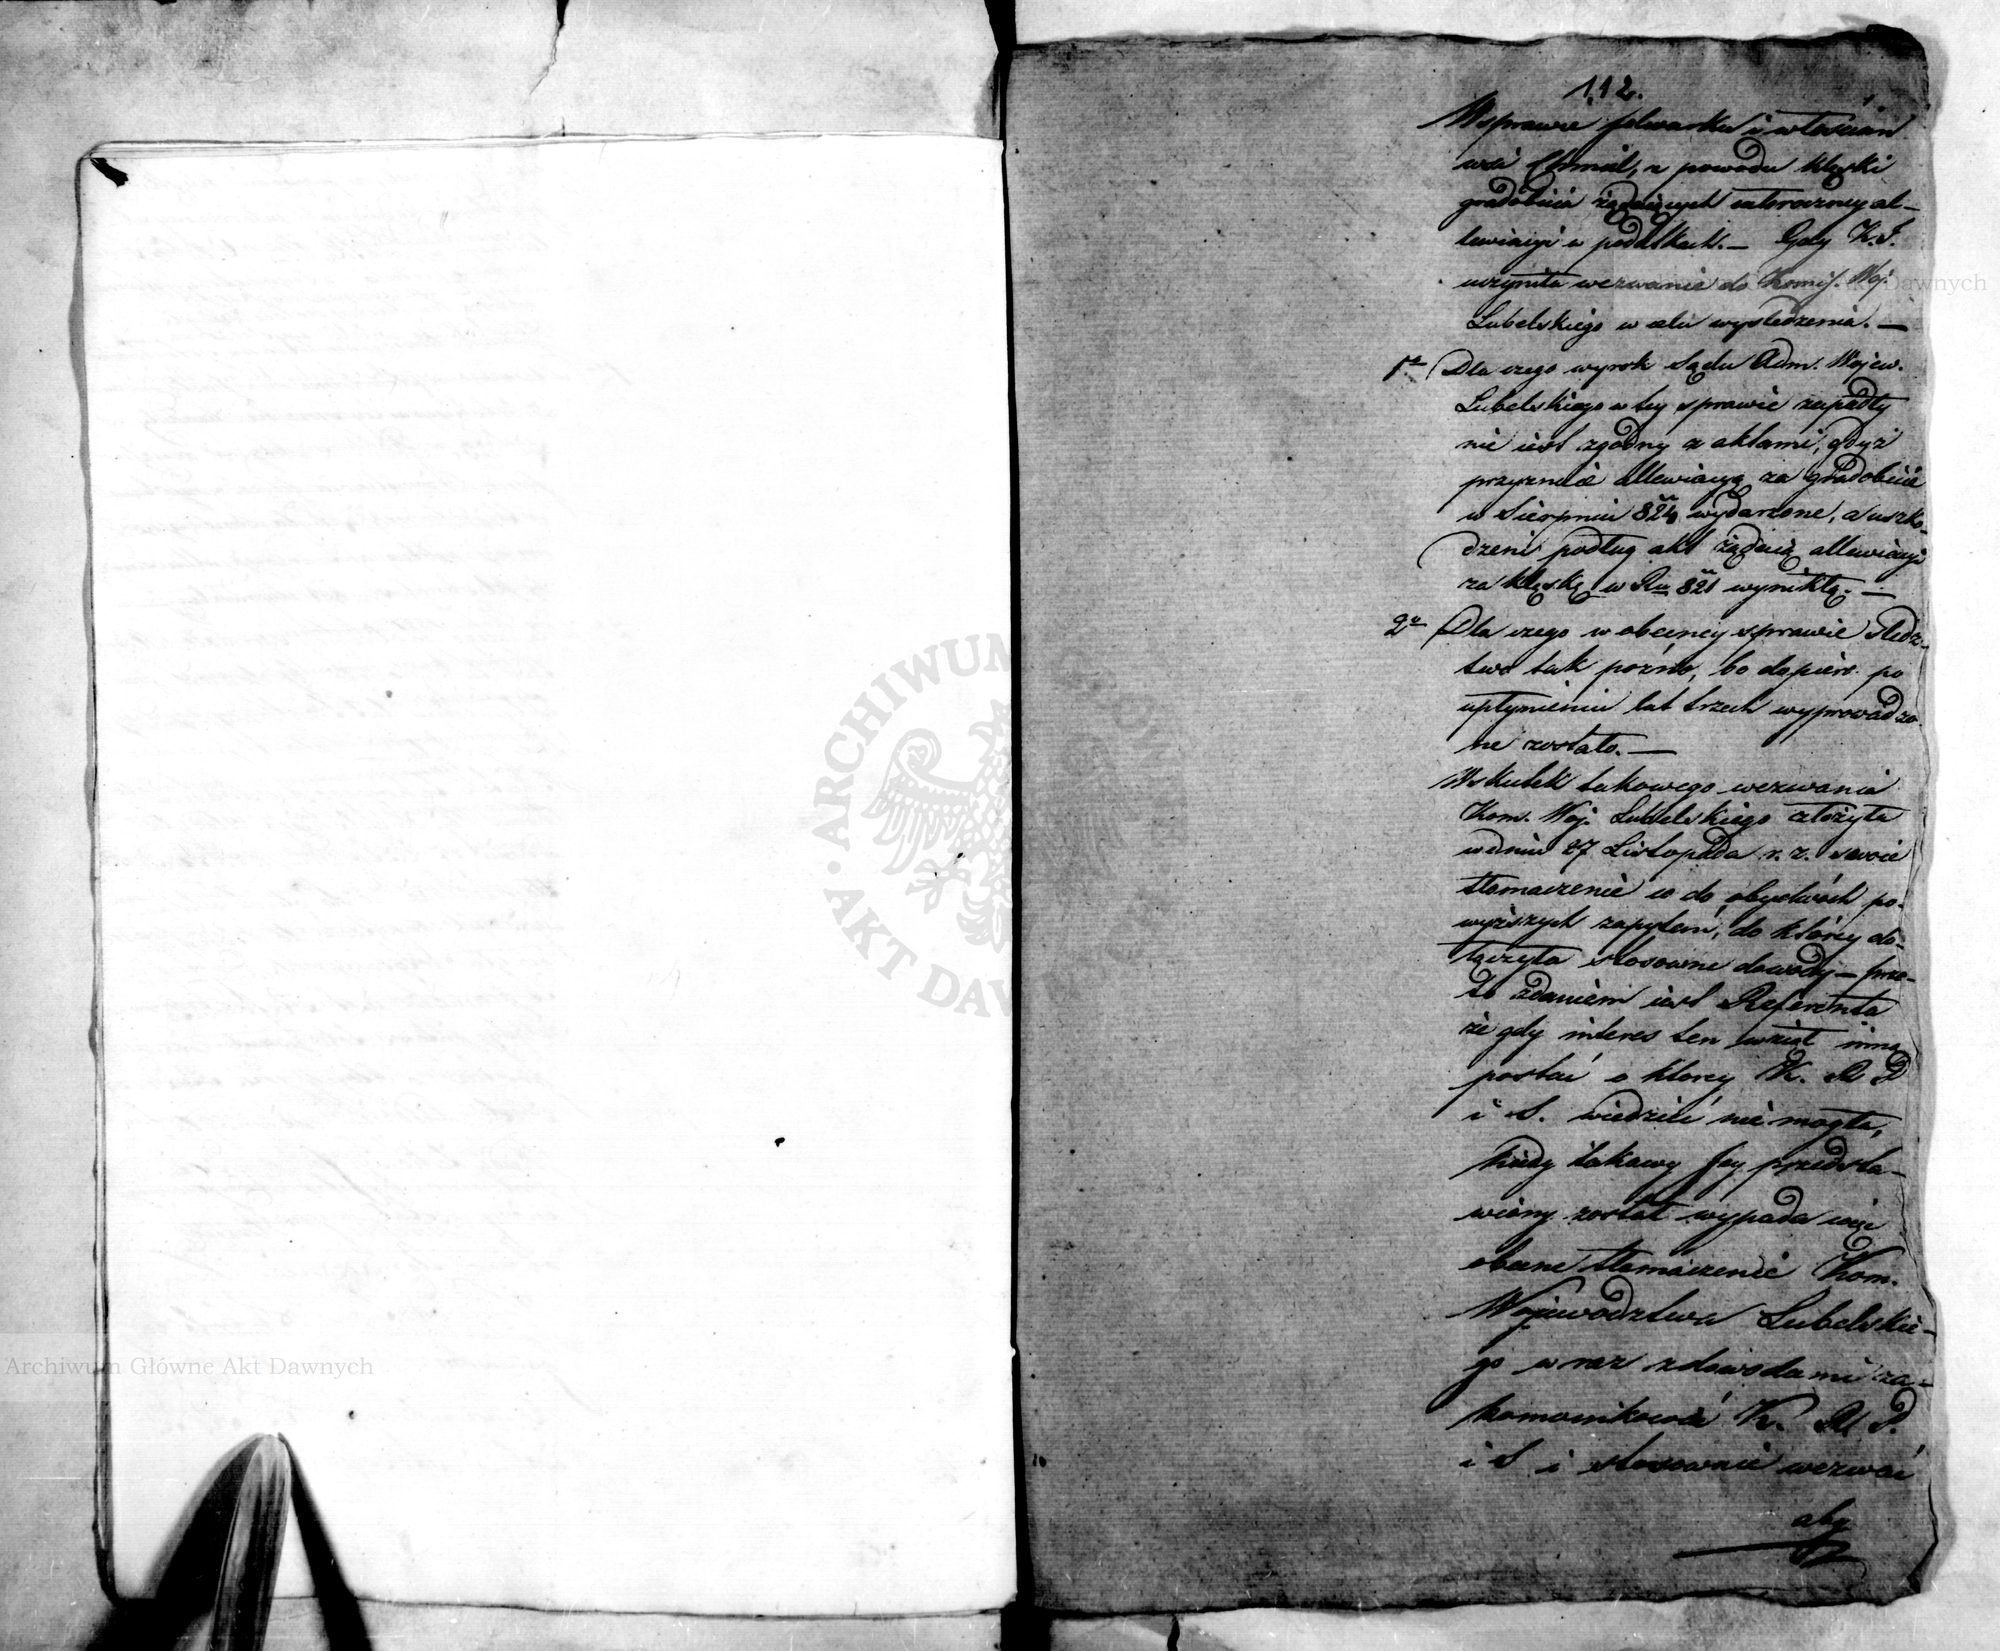 112.
W sprawie folwarku i włościan
wsi Chmiel, z powodu klęski
gradobicia żądaiących intorazney al-
lewiacyi w podatkach. — Gdy K. J.
uczyniła wezwanie do Komiſ. Woj.
Lubelskiego w celu wyśledzenia. —
1° Dla czego wyrok Sądu Adm. Wojew.
Lubelskiego w tey sprawie zapadły
nie iest zgodny z aktami, gdyż
przyznaie allewiacyą za gradobicie
w Sierpniu 824 wydarzone, a uszko-
dzeni podług akt żądaią allewiacyi
za klęskę w Ru 821 wynikłą. —
2° Dla czego w obecney sprawie śledz-
two tak poźno, bo dopiero po
upłynieniu lat trzech wyprowadzo-
ne zostało. —
W skutek takowego wezwania
Kom. Woj. Lubelskiego złożyła
w dniu 27 Listopada r. z. swoie
tłomaczenie co do obydwóch po-
wyższych zapytań, do któréy do-
łączyła stosowne dowody — prze-
to zdaniem iest Referenta
że gdy interes ten wziął inną
postać o ktorey K. R P
i S. wiedzieć nie mogła,
kiedy takowy Jey przedsta-
wiony został wypada więc
obecne tłomaczenie Kom.
Województwa Lubelskie-
go wraz z dowodami za-
komunikować K. R P.
i S i stosownie wezwać
aby
Archiwum Główne Akt Dawnych
ARCHIWUM GŁÓWNE AKT DAWNYCH